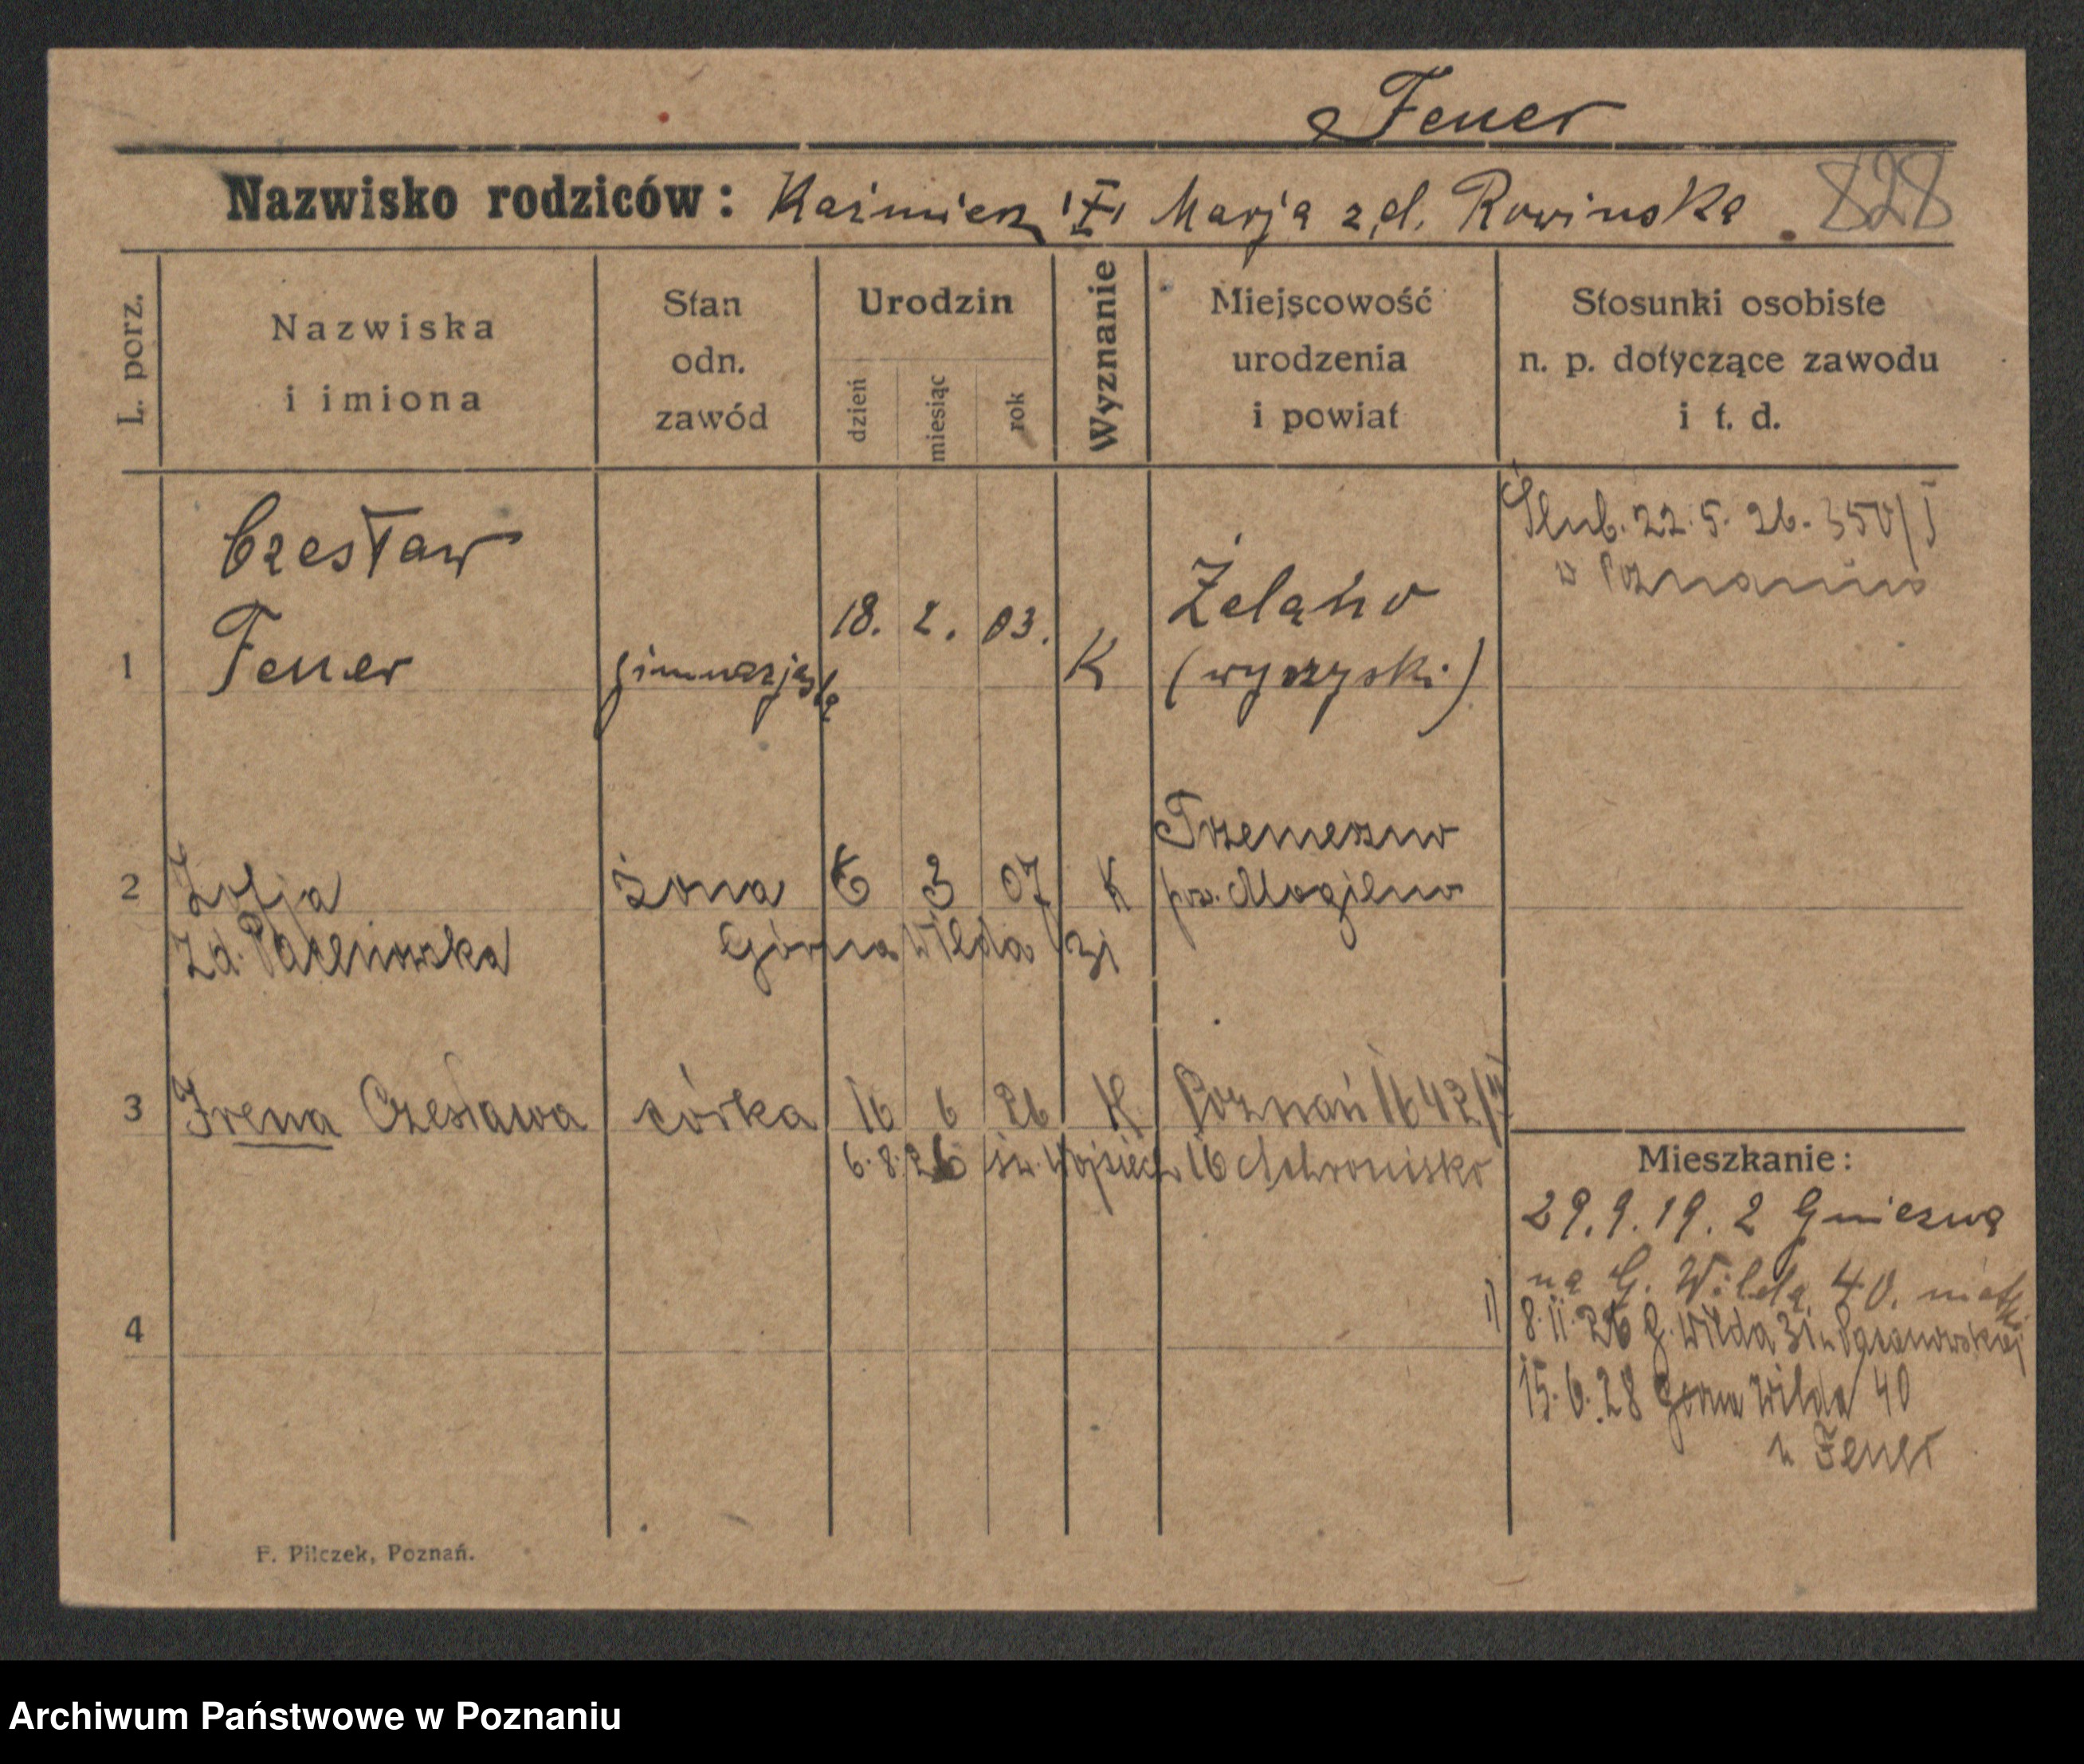 Feuer
Nazwisko rodziców: Kaźmierz i Marja z.d. Rowinska 828
L. porz.
Nazwiska i imiona
Stan odn. zawód
Urodzin
dzień miesiąc rok
Wyznanie
Miejscowość urodzenia i powiat
Stosunki osobiste n. p. dotyczące zawodu i t. d.
1 Czesław Feuer gimnazjasta 18. 2. 03. K
(wyrzyski)
Ślub. 22.5.26. 350/I
w Poznaniu
2 Zofja żona 6 3 07 K Trzemeszno
pow. Mogilno
zd.
Górna Wilda 31
3 Irena Czesława córka 16 6 26 K Poznań 1642/II
6.8.26 św. Wojciech 16
4
Mieszkanie:
29.9.19. z Gniezna
na G. Wilda 40.
1) 8.11.26 G. Wilda 31 u
15.6.28 Górna Wilda 40
u Feuer
F. Pilczek, Poznań.
Archiwum Państwowe w Poznaniu